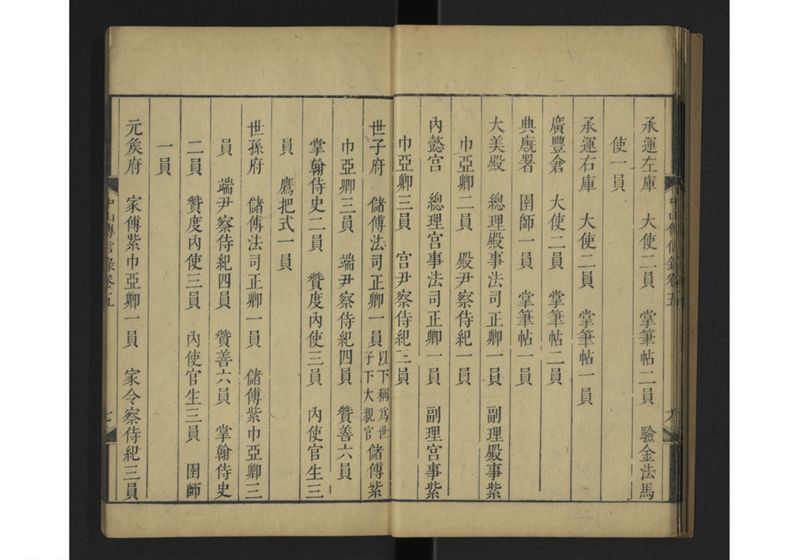 承運左庫　大使二員　掌筆帖二員　驗金法馬
使一員
承運右庫　大使二員　掌筆帖一員
廣豐倉　大使二員　掌筆帖二員
典廐署　圉師一員　掌筆帖一員
大美殿　總理殿事法司正卿一員　副理殿事紫
巾亞卿二員　殿尹察侍紀一員
內懿宫　總理宫事法司正卿一員　副理宫事紫
巾亞卿三員　宫尹察侍紀二員
世子府　儲傅法司正卿一員以下稱爲世子下大親官儲傅紫
巾亞卿三員　端尹察侍紀四員　贊善六員
掌翰侍史二員　贊度內使三員　內使官生三
員　鷹把式一員
世孫府　儲傅法司正卿一員　儲傅紫巾亞卿三
員　端尹察侍紀四員　贊善六員　掌翰侍史
二員　贊度內使三員　內使官生三員　圉師
一員
元矦府　家傅紫巾亞卿一員　家令察侍紀三員
中山傳信錄卷五　七